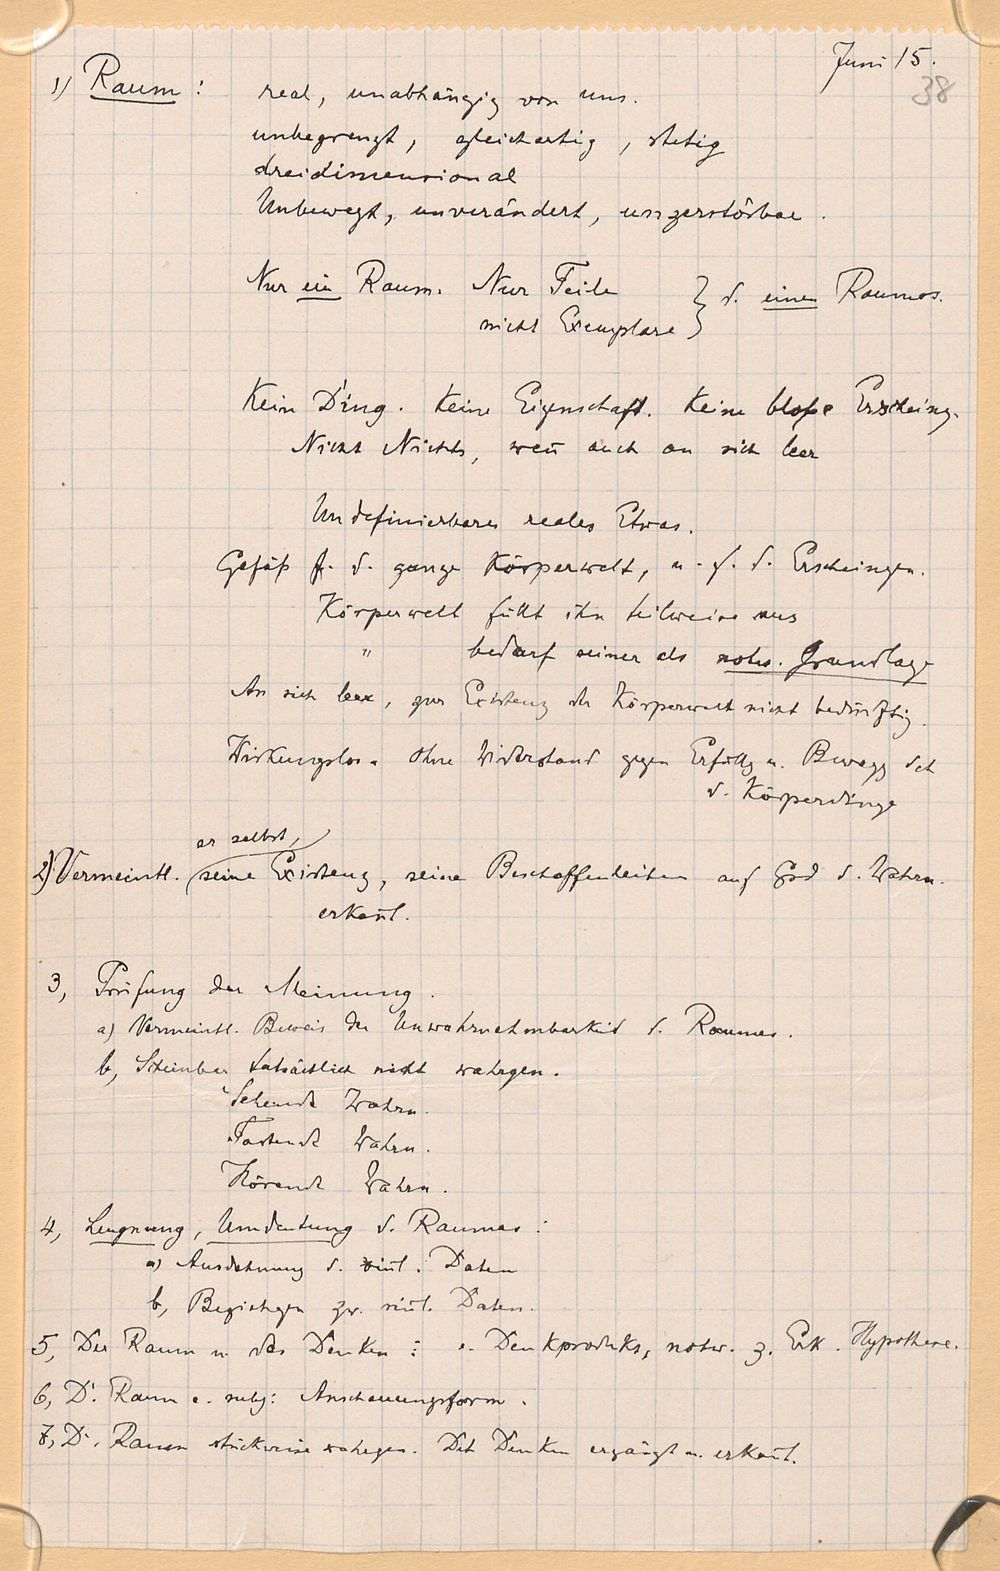 Juni 15.
38
1) Raum : real, unabhängig von uns.
unbegrenzt, gleichartig, stetig
dreidimensional
Unbewegt, unverändert, unzerstörbar.
Nur ein Raum. Nur Teile } d. einen Raumes.
nicht Exemplare
Kein Ding. Keine Eigenschaft. Keine bloße Erscheing.
Nicht Nichts, weñ auch an sich leer
Undefinierbares reales Etwas.
Gefäß f. d. ganze Körperwelt, u. f. d. Erscheingen.
Körperwelt füllt ihn teilweise aus
" bedarf seiner als notw. Grundlage
An sich leer, zur Existenz der Körperwelt nicht bedürftig.
Wirkungslos. Ohne Widerstand gegen Erfüllg u. Bewegg der
d. Körperdinge
er selbst,
2) Vermeintl. seine Existenz, seine Beschaffenheiten auf Grd d. Wahrn.
erkañt.
3, Prüfung der Meinung.
a) Vermeintl. Beweis der Unwahrnehmbarkeit d. Raumes.
b, Scheinbar tatsächlich nicht wahrgen.
Sehende Wahrn.
Tastende Wahrn.
Hörende Wahrn.
4, Leugnung, Umdeutung d. Raumes :
a) Ausdehnung d. siñl. Daten
b, Beziehgen zw. siñl. Daten.
5, Der Raum u. das Denken : e. Denkprodukt, notw. z. Erk. Hypothese.
6, D. Raum e. subj: Anschauungsform.
7, D. Raum stückweise wahrgen. Das Denken ergänzt u. erkañt.